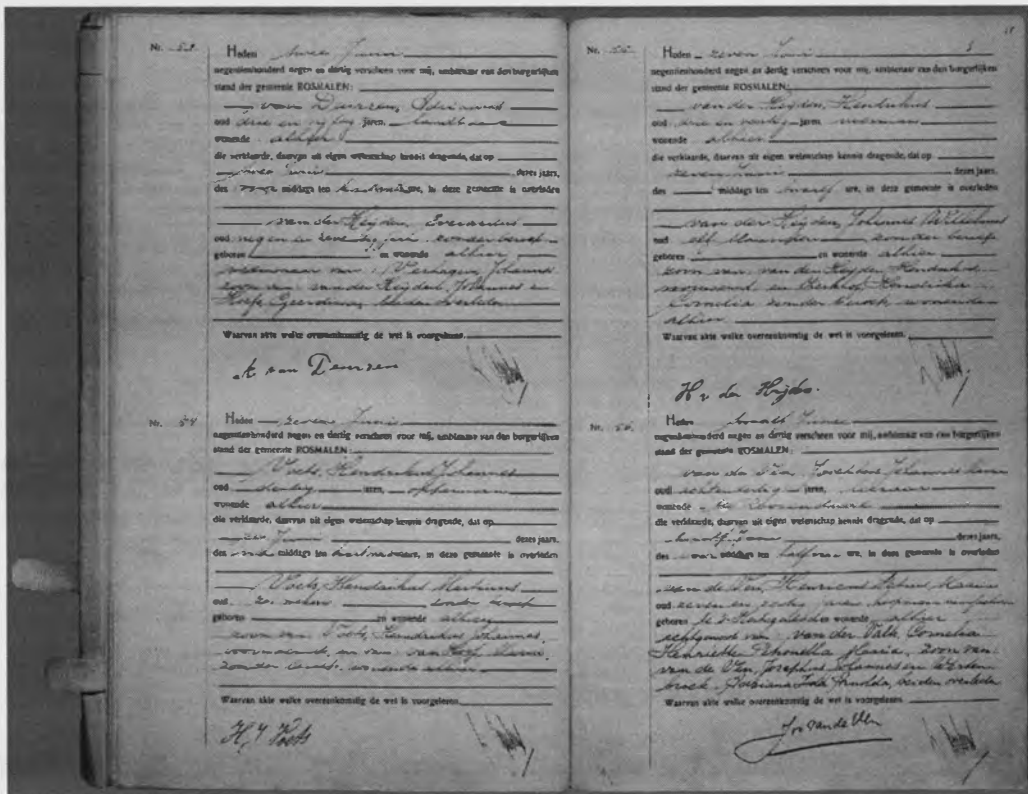 Nr. 53
Heden twee Juni
negentienhonderd negen en dertig verscheen voor mij, ambtenaar van den burgerlijken
stand der gemeente ROSMALEN:
van Deursen, Adrianus
oud drie en vijftig jaren, landbouwer
wonende alhier
die verklaarde, daarvan uit eigen wetenschap kennis dragende, dat op
twee Juni dezes jaars,
des middags ten ure, in deze gemeente is overleden
van der Heijden, Everardus
oud negen en zeventig jaren zonder beroep
geboren en wonende alhier
weduwnaar van Verhagen, Johanna
zoon van van der Heijden, Johannes en
Geerdina, beiden overleden
Waarvan akte welke overeenkomstig de wet is voorgelezen.
A van Deursen
Nr. 54
Heden zeven Juni
negentienhonderd negen en dertig verscheen voor mij, ambtenaar van den burgerlijken
stand der gemeente ROSMALEN:
Voets, Hendrikus Johannes
oud dertig jaren, opperman
wonende alhier
die verklaarde, daarvan uit eigen wetenschap kennis dragende, dat op
Juni dezes jaars,
des middags ten ure, in deze gemeente is overleden
Voets, Hendrikus Martinus
oud zonder beroep
geboren en wonende alhier
zoon van Voets, Hendrikus Johannes,
voornoemd, en van van
zonder beroep, wonende alhier
Waarvan akte welke overeenkomstig de wet is voorgelezen.
H, J Voets
Nr. 55
Heden zeven Juni
negentienhonderd negen en dertig verscheen voor mij, ambtenaar van den burgerlijken
stand der gemeente ROSMALEN:
van der Heijden, Hendrikus
oud drie en veertig jaren,
wonende alhier
die verklaarde, daarvan uit eigen wetenschap kennis dragende, dat op
zeven Juni dezes jaars,
des middags ten twaalf ure, in deze gemeente is overleden
van der Heijden, Johannes Wilhelmus
oud elf maanden zonder beroep
geboren en wonende alhier
zoon van van der Heijden Hendrikus
voornoemd en Kerkhof Hendrika
Cornelia zonder beroep wonende
alhier
Waarvan akte welke overeenkomstig de wet is voorgelezen.
H v. der Heijden.
Nr. 56
Heden twaalf Juni
negentienhonderd negen en dertig verscheen voor mij, ambtenaar van den burgerlijken
stand der gemeente ROSMALEN:
van de Ven, Josephus Johannes
oud acht en dertig jaren, leeraar
wonende te
die verklaarde, daarvan uit eigen wetenschap kennis dragende, dat op
Juni dezes jaars,
des middags ten half ure, in deze gemeente is overleden
van de Ven, Henricus Maria
oud zeven en zestig jaren
geboren te en wonende alhier
echtgenoot van van der Valk, Cornelia
Henriette Petronella Maria, zoon van
van de Ven, Josephus Johannes en
Arnolda, beiden overleden
Waarvan akte welke overeenkomstig de wet is voorgelezen.
Jos van de Ven